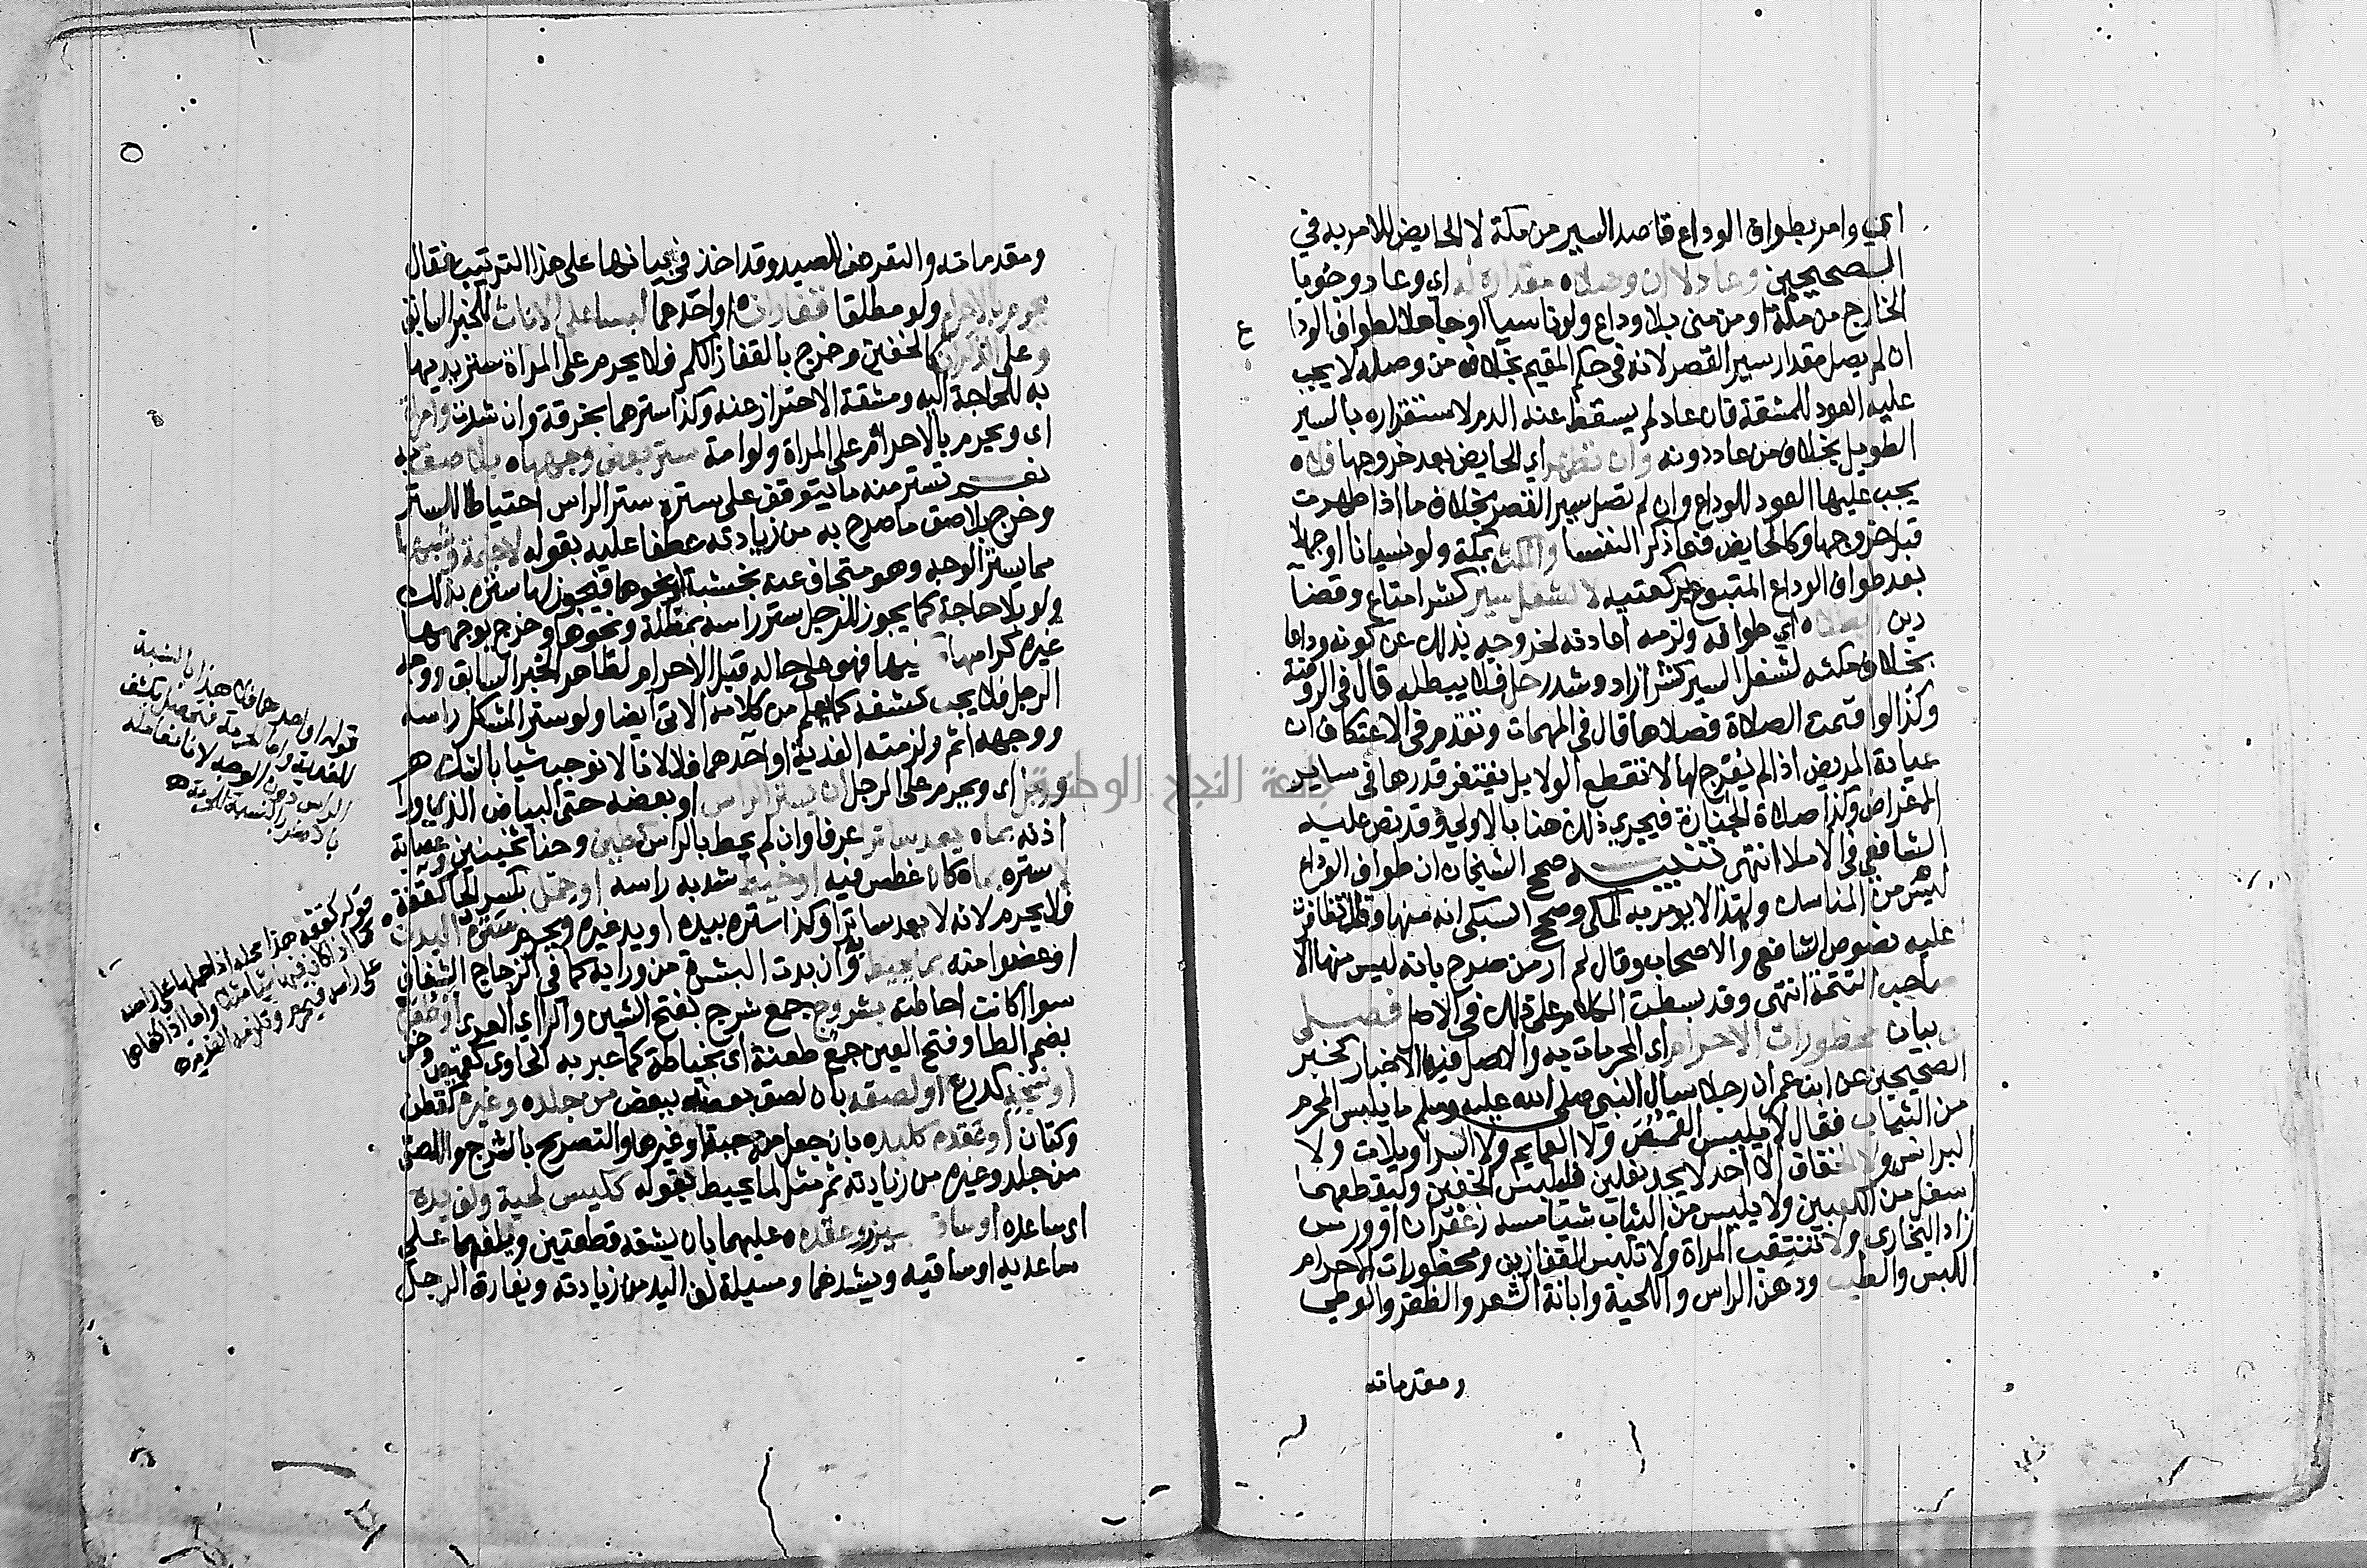 اي وامر بطواف الوداع قاصد السير من مكة لا الحايض للامر به في
الصحيحين وعاد لا ان وصلاه مقداره له اي وعاد وجوبا
الخارج من مكة او من منى بلا وداع ولو ناسيا او جاهلا لطواف الودا
ع
ان لم يصل مقدار سير القصر لانه في حكم المقيم بخلاف من وصله لا يجب
عليه العود للمشقة فان عاد لم يسقط عنه الدم لاستقراره بالسير
الطويل بخلاف من عاد دونه وان تطهر اي الحايض بعد خروجها فلا
يجب عليها العود للوداع وان لم تصل سير القصر بخلاف ما اذا طهرت
قبل خروجها وكالحايض فيما ذكر النفسا والمكث بمكة ولو نسيانا او جهلا
بعد طواف الوداع المتبوع بركعتيه لا لشغل سير كشرا متاع وقضا
دين ابطلاه اي طوافه ولزمه اعادته لخروجه بذلك عن كونه وداعا
بخلاف مكثه لشغل السير كشرا زاد وشد رحل فلا يبطله قال في الروضة
وكذا لو اقيمت الصلاة فصلاها قال في المهمات وتقدم في الاعتكاف ان
عيادة المريض اذا لم يعرج لها لا تقطع الولا بل يغتفر قدرها في ساير
الاغراض وكذا صلاة الجنازة فيجري ذلك هنا بالاولى وقد نص عليه
الشافعي في الاملا انتهى تنبيه صحح الشيخان ان طواف الوداع
ليس من المناسك ولهذا لا يومر به المكي وصحح السبكي انه منها وقد تظافرت
عليه نصوص الشافعي والاصحاب وقال لم ار من صرح بانه ليس منها الا
صاحب التتمة انتهى وقد بسطت الكلام على ذلك في الاصل فصل
في بيان محظورات الاحرام اي المحرمات به والاصل فيه الاخبار كخبر
الصحيحين عن ابن عمر ان رجلا سال النبي صلى الله عليه وسلم ما يلبس المحرم
من الثياب فقال لا يلبس القميص ولا العمايم ولا السراويلات ولا
البرانس ولا الخفاف الا احد لا يجد نعلين فليلبس الخفين وليقطعهما
اسفل من الكعبين ولا يلبس من الثياب شيا مسه زعفران او ورس
زاد البخاري ولا تنتقب المراة ولا تلبس القفازين ومحظورات الاحرام
اللبس والطيب ودهن الراس واللحية وابانة الشعر والظفر والوطي
ومقدماته
ومقدماته والتعرض للصيد وقد اخذ في بيانها على هذا الترتيب فقال
يحرم بالاحرام ولو مطلقا قفازان او احدهما لبسا على الاناث للخبر السابق
وعلى الذكران كالخفين وخرج بالقفاز الكم فلا يحرم على المراة ستر يديها
به للحاجة اليه ومشقة الاحتراز عنه وكذا سترهما بخرقة وان شدت وامراة
اي ويحرم بالاحرام على المراة ولو امة ستر بعض وجهها بلاصق به
نعم تستر منه ما يتوقف على ستره ستر الراس احتياطا للستر
وخرج بلاصق ما صرح به من زيادته عطفا عليه بقوله لا خيمة وشبهها
مما يستر الوجه وهو متجاف عنه بخشبة او نحوها فيجوز لها ستره بذلك
ولو بلا حاجة كما يجوز للرجل ستر راسه بمظلة ونحوها وخرج بوجهها
غيره كراسها فهو على حاله قبل الاحرام لظاهر الخبر السابق ووجه
الرجل فلا يجب كشفه كما يعلم من كلامه الاتي ايضا ولو ستر المشكل راسه
ووجهه اثم ولزمته الفدية او احدهما فلا لانا لا نوجب شيا بالشك هر
ورجل اي ويحرم على الرجل ان يستر الراس او بعضه حتى البياض الذي ورا
اذنه بما يعد ساترا عرفا وان لم يحط بالراس كطين وحنا ثخينين وعصابة
لا ستره بما كان غطس فيه او خيط شد به راسه او حمل بكسر الحا كقفة
فلا يحرم لانه لا يعد ساترا وكذا ستره بيده او يد غيره ويحرم ستره البدن
او عضوا منه بما يحيط وان بدت البشرة من ورايه كما في الزجاج الشفاف
سوا كانت احاطته بشروج جمع شرج بفتح الشين والراي العرى او طعن
بضم الطا وفتح العين جمع طعنة اي بخياطة كما عبر به الحاوي كقميص وخف
او نسجه كدرع او لصقه بان لصق بعضه ببعض من جلده وغيره كقطن
وكتان او عقده كلبده بان جعل منه جبة او غيرها والتصريح بالشرج واللصق
من جلد وغيره من زيادته ثم مثل لما يحيط بقوله ككيس لحية ولف يده
اي ساعده او ساق وعقده عليهما بان يشقه قطعتين ويلفهما على
ساعديه او ساقيه ويشدهما ومسيلة لف اليد من زيادته ويفارق الرجل
قوله او احدهما فلا هذا بالنسبة
للفدية واما الحرمة فتحصل بكشف
الراس دون الوجه لانا نعامله
قوله كقفة هذا محله اذا حملها على راسه
كما اذا كان فيها شيا مثلا واما اذا اكفاها
على راسه فيحرم وتلزمه الفدية
جامعة النجاح الوطنية